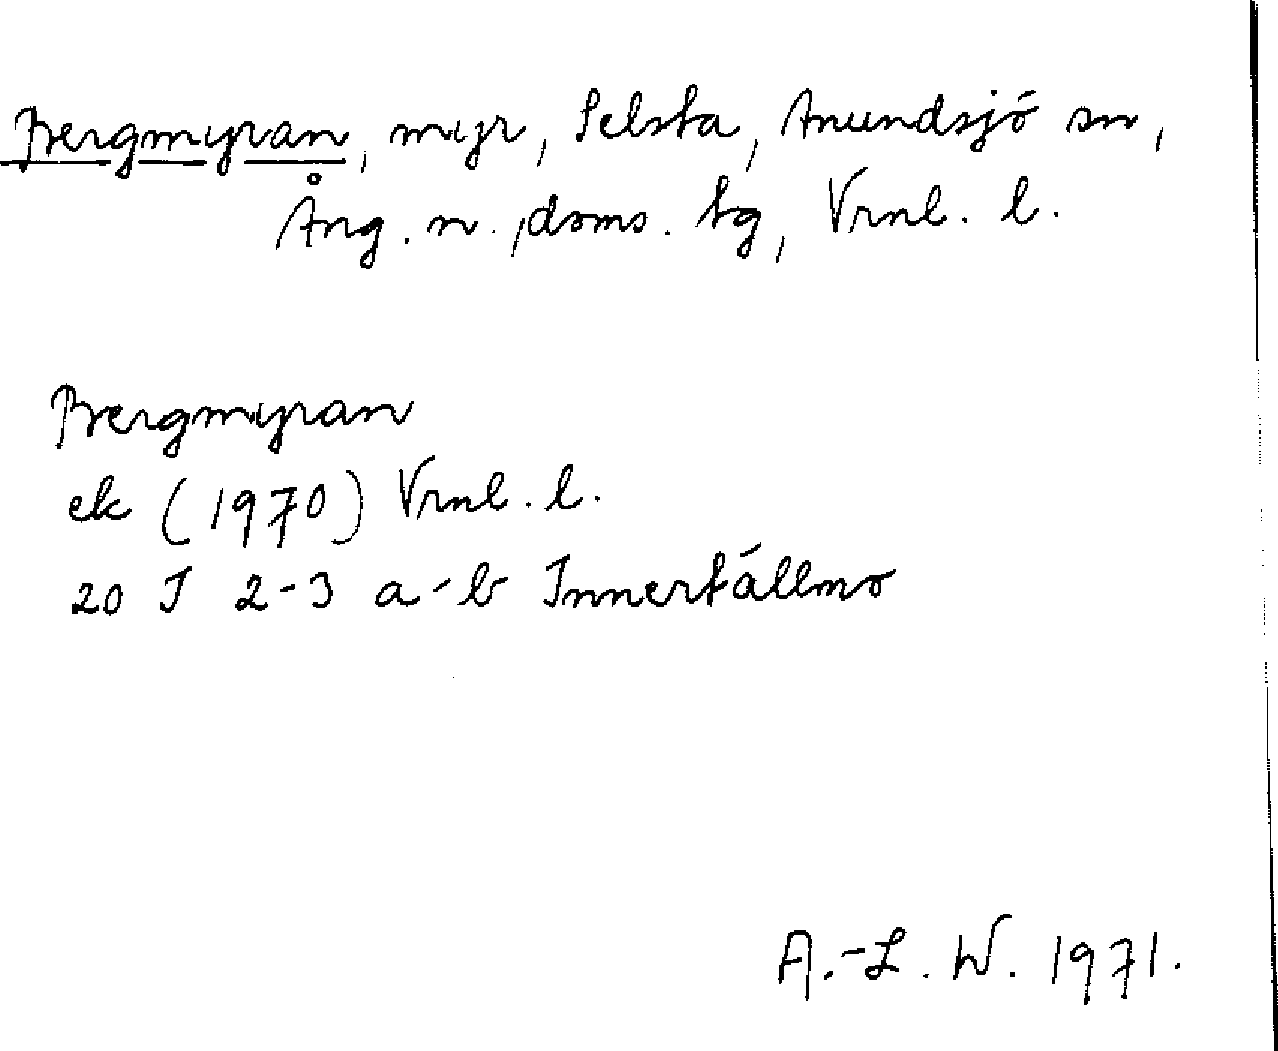 Bergmyran, myr, Selsta, Anundsjö sn,
Ång. n. doms. tg, Vrnl. l.
Bergmyran
ek (1970) Vrnl. l.
20 J 2-3 a-b Innertällmo
A.-L. W. 1971.